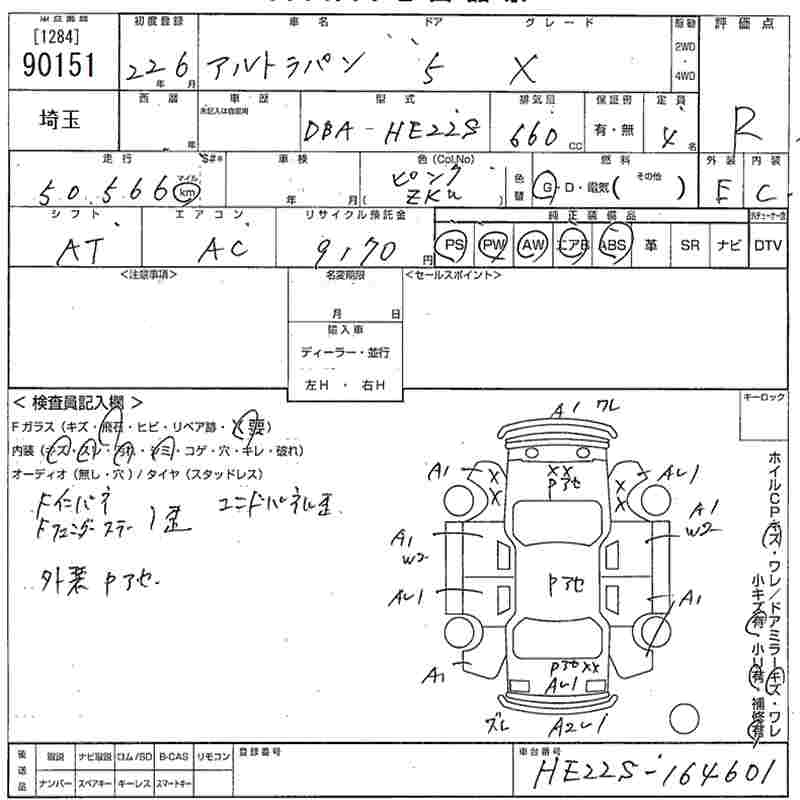 [1284]
90151
埼玉
初度登録
22 年 6 月
車名
アルトラパン
ドア
5
グレード
X
駆動
2WD
・
4WD
評価点
R
西暦
年
車歴
未記入は自家用
型式
DBA-HE22S
排気量
660 CC
保証書
有・無
定員
4 名
走行
50,566
マイル
km
S#*
車検
年 月
色 (Col,No)
ピンク
ZKU
色替
燃料
G・D・電気 (その他 )
外装
E
内装
C
シフト
AT
エアコン
AC
リサイクル預託金
9170 円
純正装備品
PS PW AW エアB ABS 革 SR ナビ
DTV
<注意事項>
名変期限
月 日
輸入車
ディーラー・並行
左H ・ 右H
<セールスポイント>
< 検査員記入欄 >
Fガラス (キズ・飛石・ヒビ・リペア跡・X要)
内装 (キズ・スレ・汚れ・シミ・コゲ・穴・キレ・破れ)
オーディオ (無し・穴) / タイヤ (スタッドレス)
外装 Pアセ.
キーロック
ホイルCPキズ・ワレ/ドアミラーキズ・ワレ
小キズ有 小U有 補修有
A1 ワレ
A1
XX
Pアセ
AU1
A1
W2
A1
W2
AU1
Pアセ
A1
A1
PアセXX
AU1
ズレ
A2U1
後送品
取説 ナビ取説 ロム/SD B-CAS リモコン
ナンバー スペアキー キーレス スマートキー
登録番号
車台番号
HE22S-164601